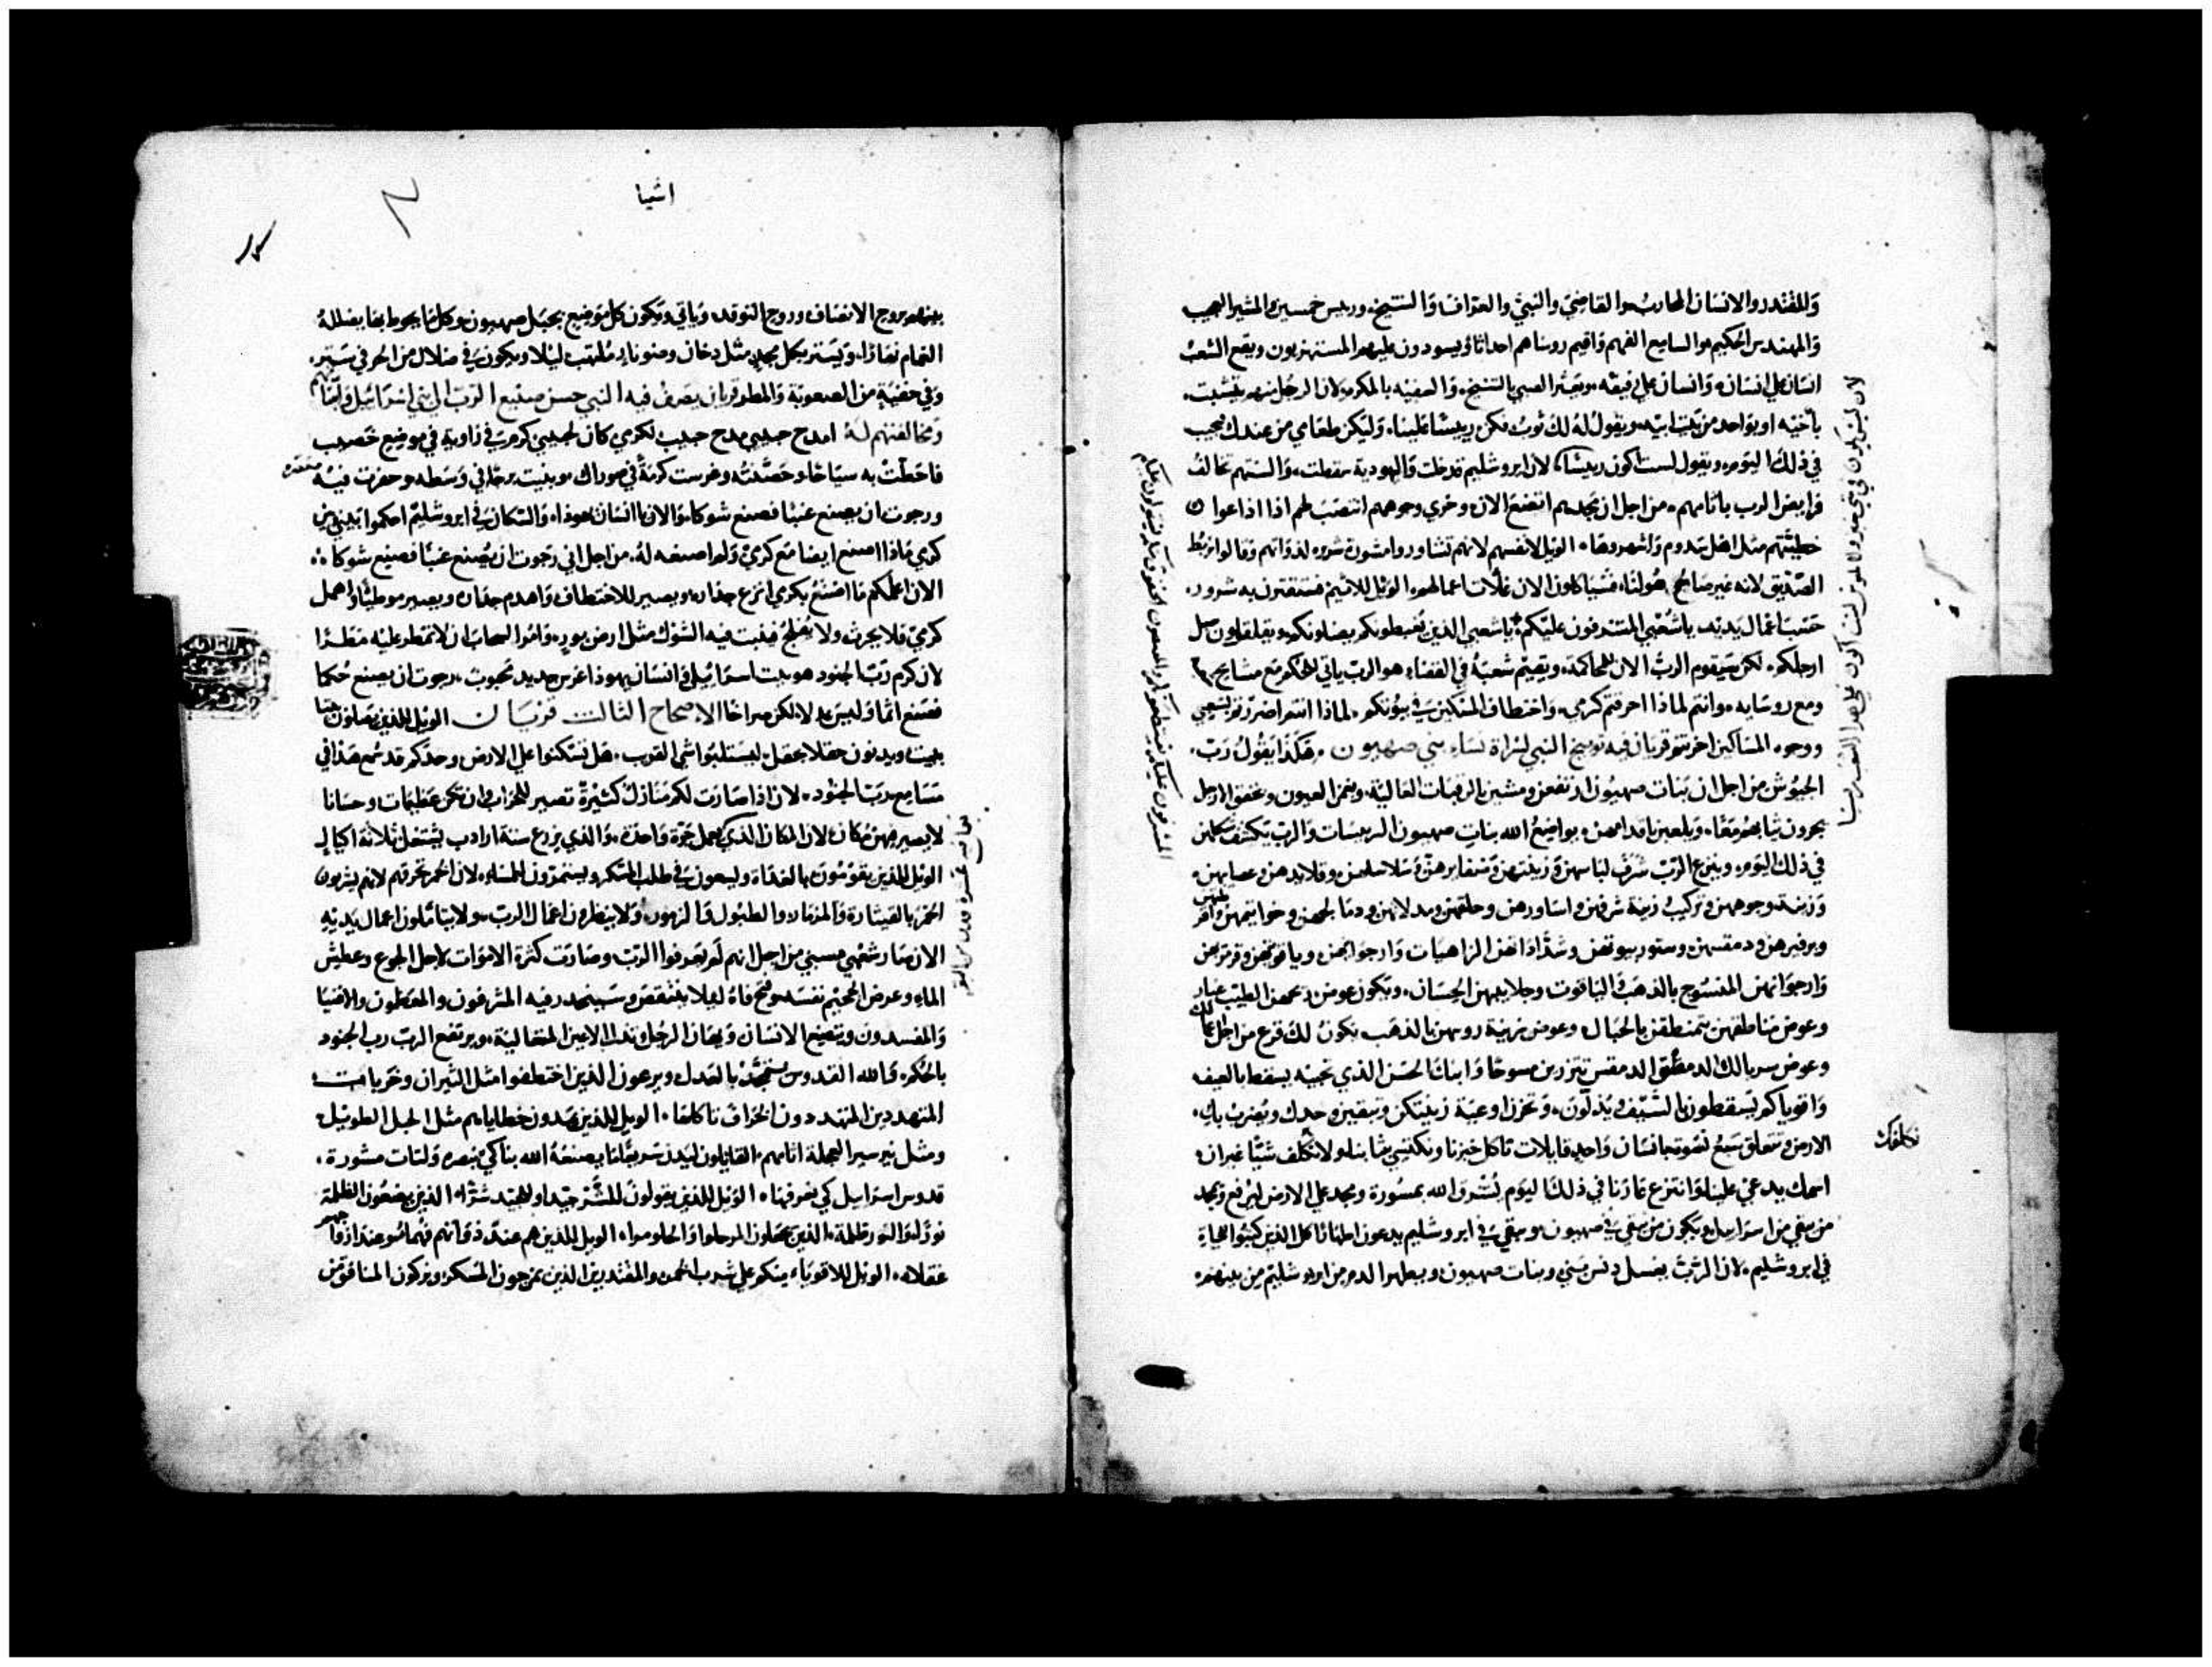 والمقتدر والانسان المحارب والقاضي والنبي والعراف والشيخ ورييس خمسين والمشير العجيب
والمهندس الحكيم والسامع الفهم واقيم روساهم احداثا ويسودون عليهم المستهزيون ويقع الشعب
انسان علي انسان وانسان علي رفيقه ويعثر الصبي بالشيخ والسفيه بالمكرم لان الرجل منهم يتشبت
باخيه او بواحد من بيت ابيه ويقول له لك ثوب فكن رييسا علينا وليكن طعامي من عندك فيجيب
في ذلك اليوم ويقول لست اكون رييسا لان ايروشليم قد خلت واليهودية سقطت والسنتهم تخالف
فرايض الرب باثامهم من اجل ان مجدهم اتضع الان وخزي وجوههم انتصب لهم اذا اذاعوا
خطيتهم مثل اهل سدوم واشهروها الويل لانفسهم لانهم تشاوروا مشورة شريره لذواتهم وقالوا نربط
الصديق لانه غير صالح هو لنا فسياكلون الان غلات اعمالهم الويل للاثيم فستقترن به شرور
حسب اعمال يديه ياشعبي المستدرفون عليكم ياشعبي الذين يغبطونكم يضلونكم ويقلقلون سبل
ارجلكم لكن سيقوم الرب الان للمحاكمة ويقيم شعبه في القضاء هو الرب ياتي للحكم مع مشايخ
ومع روسايه وانتم لماذا احرقتم كرمي واختطاف المسكين في بيوتكم لماذا انتم اضررتم لشعبي
ووجوه المساكين اخزيتم قريان فيه توبيخ النبي لشراة نساء بني صهيون هكذا يقول رب
الجيوش من اجل ان بنات صهيون ارتفعن ومشين بالرقبات العالية وبغمز العيون وبخفق الارجل
يجرون ثيابهم معا ويلعبن باقدامهن ويواضع الله بنات صهيون الرييسات والرب يكشف شكلهن
في ذلك اليوم وينزع الرب شرف لباسهن وزينتهن وضفايرهن وسلاسلهن وقلايدهن وعصايبهن
وزينة وجوههن وتركيب زينة شرفهن واساورهن وحلقهن
وبرفيرهن ودمقسهن وستور بيوتهن
وارجوانهن المنسوج بالذهب والياقوت وجلابيبهن الحسان ويكون عوض ريحهن الطيب غبار
وعوض مناطقهن يتمنطقن بالحبال وعوض زينة روسهن بالذهب يكون لك قرع من اجل اعمالك
وعوض سربالك الدمقس تتزرين مسوحا وابنك الحسن الذي تحبيه يسقط بالسيف
واقوياكم يسقطون بالسيف ويذلون وتحزن اوعية زينتكن وتبقين وحدك وتضرب بك
الارض وتتعلق سبع نسوة بانسان واحد قايلات تاكل خبزنا ونكتسي ثيابنا ولا نكلفك شيا غير ان
اسمك يدعي علينا وانتزع عارنا في ذلك اليوم يشرق الله بمشورة ومجد علي الارض ليرفع ويمجد
من بقي من اسراييل ويكون من بقي في صهيون وبقي في ايروشليم يدعون اطهارا كل الذين كتبوا للحياة
في ايروشليم لان الرب يغسل دنس بني وبنات صهيون ويطهر الدم من ايروشليم من بينهم
نكلفك
اشيا
بينهم بروح الانصاف وروح التوقد وياتي ويكون كل موضع بجبل صهيون وكلما يحوط بها يظلله
الغمام نهارا ويستر بكل مجد مثل دخان وضو نار ملتهب ليلا ويكون في ضلال من الحر في ستر
وفي خفية من الصعوبة والمطر قريان يصرف فيه النبي حسن صنيع الرب الي بني اسرائيل
ومخالفتهم له امدح حبيبي مدح حبيب لكرمي كان لحبيبي كرم في زاوية في موضع خصيب
فاحطت به سياجا وحصنته وغرست كرمة في صوراك وبنيت برجا في وسطه وحفرت فيه معصره
ورجوت ان يصنع عنبا فصنع شوكا والان يا انسان يهوذا والسكان في ايروشليم احكموا بيني وبين
كرمي ماذا اصنع ايضا مع كرمي ولم اصنعه له من اجل اني رجوت ان يصنع عنبا فصنع شوكا
الان اعلمكم ما اصنع بكرمي انزع جداره ويصير للاختطاف واهدم جداره ويصير موطيا واهمل
كرمي فلا يحرث ولا يفلح فينبت فيه الشوك مثل ارض بور وامر السحاب ان لا تمطر عليه مطرا
لان كرم رب الجنود هو بيت اسرائيل وانسان يهوذا غرس جديد محبوب رجوت ان يصنع حكما
فصنع اثما وليس عدلا لكن صراخا الاصحاح الثالث قريان الويل للذين يصلون بيتا
ببيت ويدنون حقلا بحقل ليستلبوا شي القريب هل تسكنوا علي الارض وحدكم قد سمع هذا في
مسامع رب الجنود لان اذا صارت لكم منازل كثيرة تصير للخراب وان تكن عظيمات وحسانا
لا يصير فيهن مكان لان المكان الذي يعمل جرة واحدة والذي يزرع ستة ارادب يشتغل ثلاثة اكيال
الويل للذين يقومون بالغداة ويسعون في طلب المسكر ويستمرون للمساء لان الخمر تحرقهم لانهم يشربون
الخمر بالقيثارة والمزمار والطبول والزمور ولا ينظرون اعمال الرب ولا يتاملون اعمال يديه
الان صار شعبي مسبي من اجل انهم لم يعرفوا الرب وصارت كثرة الاموات لاجل الجوع وعطش
الماء وعرض الجحيم نفسه وفتح فاه ليلا ينتقص وسينحدر فيه المشرفون والمعظمون والاغنيا
والمفسدون ويتضع الانسان ويهان الرجل وتذل الاعين المتعالية ويرتفع الرب رب الجنود
بالحكم والله القدوس يتمجد بالعدل ويرعون الذين اختطفوا مثل الثيران وخربات
المتهددين المتهددون الخراف تاكلها الويل للذين يمدون خطاياهم مثل الحبل الطويل
ومثل نير سير العجلة اثامهم القايلون ليدن سريعا ما يصنعه الله بنا كي نبصره ولتات مشورة
قدوس اسراييل كي نعرفها الويل للذين يقولون للشر جيدا وللجيد شرا الذين يضعون الظلمة
نورا والنور ظلمة الذين يجعلون المر حلوا والحلو مرا الويل للذين هم عند ذواتهم فهما وعند ارواحهم
عقلاء الويل للاقوياء منكم علي شرب الخمر والمقتدرين الذين يمزجون المسكر ويزكون المنافق من